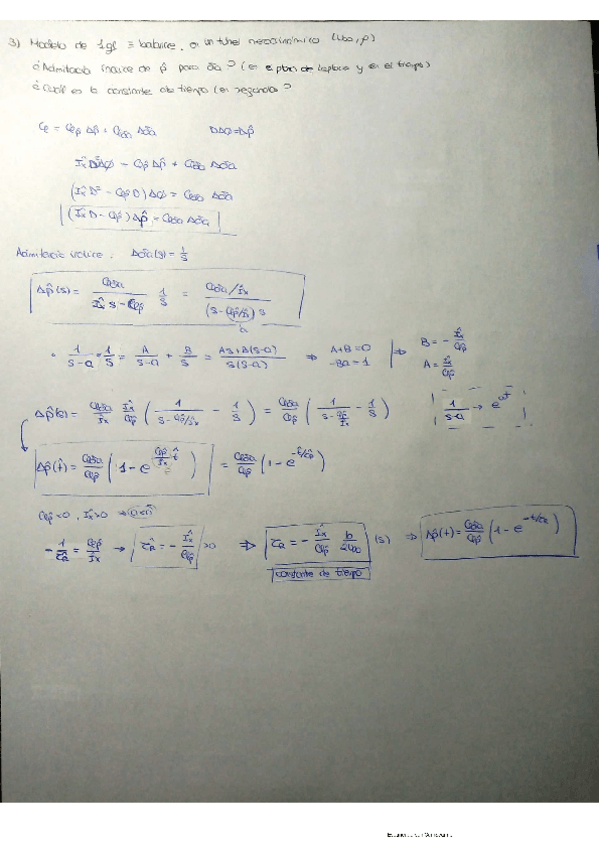 3) Modelo de 1gl ≡ balance, en un túnel aerodinámico (u∞, ρ)
¿Admitancia indice de p̂ para δa? (en el plano de Laplace y en el tiempo)
¿Cuál es la constante de tiempo (en segundos)?
Cl = Clp̂ Δp̂ + Clδa Δδa DΔφ = Δp̂
Îx D²Δφ = Clp̂ Δp̂ + Clδa Δδa
(Îx D² - Clp̂ D) Δφ = Clδa Δδa
(Îx D - Clp̂) Δp̂ = Clδa Δδa
Admitancia indice: Δδa(s) = 1/s
Δp̂(s) = Clδa / (Îx s - Clp̂) · 1/s = (Clδa/Îx) / ((s - Clp̂/Îx) s)
a
· 1/(s-a) · 1/s = A/(s-a) + B/s = (As + B(s-a)) / (s(s-a)) ⇒ A+B=0 -Ba=1 ⇒ B = - Îx/Clp̂ A = Îx/Clp̂
Δp̂(s) = Clδa/Îx Îx/Clp̂ (1/(s - Clp̂/Îx) - 1/s) = Clδa/Clp̂ (1/(s - Clp̂/Îx) - 1/s) 1/(s-a) → e^{at̂}
Δp̂(t̂) = Clδa/Clp̂ (1 - e^{Clp̂/Îx t̂}) = Clδa/Clp̂ (1 - e^{-t̂/τ̂R})
Clp̂ < 0, Îx > 0
- 1/τ̂R = Clp̂/Îx → τ̂R = - Îx/Clp̂ > 0 ⇒ τR = - Îx/Clp̂ b/2u∞ (s) ⇒ Δp̂(t) = Clδa/Clp̂ (1 - e^{-t/τR})
constante de tiempo